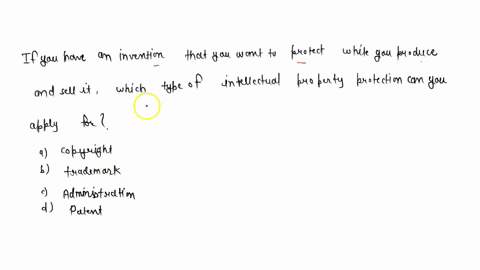 If you have an invention that you want to protect while you produce
and sell it, which type of intellectual property protection can you
apply for?
a) Copyright
b) trademark
c) Administration
d) Patent